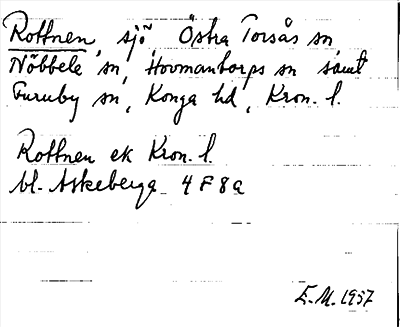 Rottnen, sjö, Östra Torsås sn,
Nöbbele sn, Hovmantorps sn samt
Furuby sn, Konga hd, Kron. l.
Rottnen ek Kron. l.
bl. Askeberga 4 F 8 a
E.M. 1937